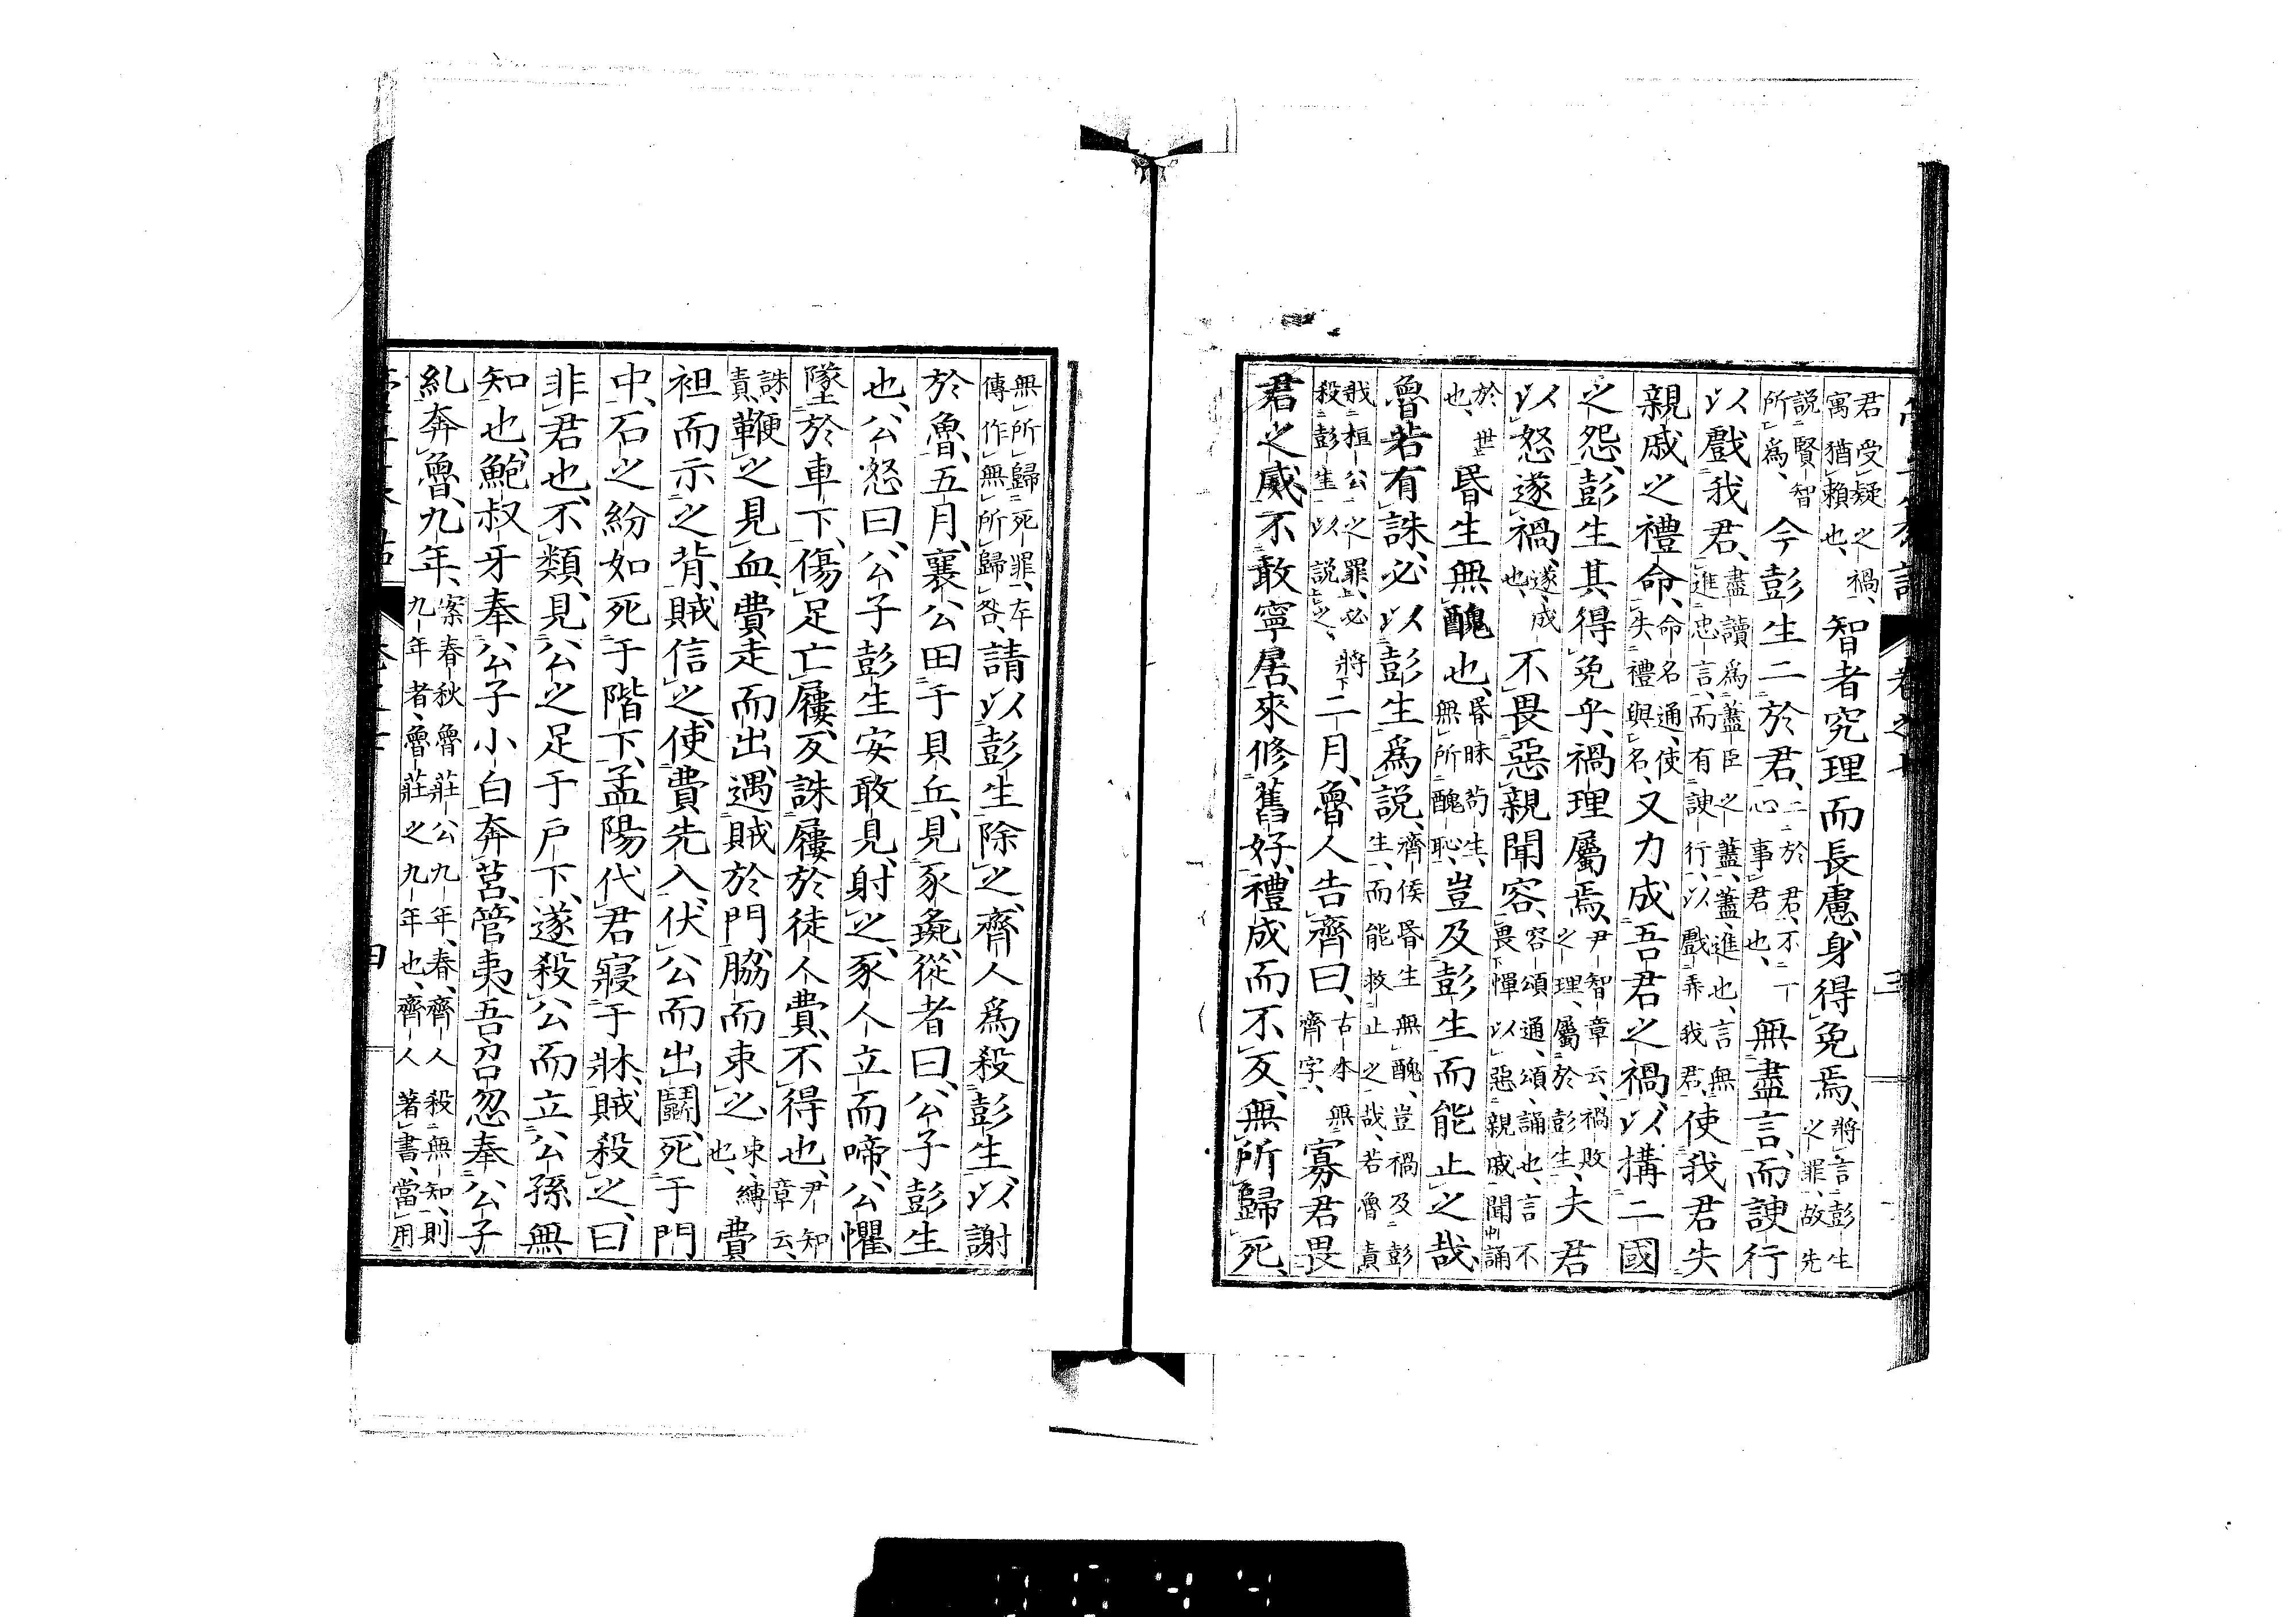 君受疑之禍、寓猶賴也、智者究理而長慮、身得免焉、將言彭生之罪、故先
說賢智所爲、今彭生二於君、二於君、不一心事君也、無盡言、而諛行
以戲我君、盡讀爲藎臣之藎、藎、進也、言無進忠言、而有諛行、以戲弄我君、使我君失
親戚之禮命、命名通、使失禮與名、又力成吾君之禍、以搆二國
之怨、彭生其得免乎、禍理屬焉、尹智章云、禍敗之理、屬於彭生、夫君
以怒遂禍、遂、成也、不畏惡親聞容、容頌通、頌、誦也、言不畏憚以惡親戚聞誦
於世也、昬生無醜也、昬昧苟生、無所醜恥、豈及彭生而能止之哉、
魯若有誅、必以彭生爲說、齊侯昬生無醜、豈禍及彭生、而能救止之哉、若魯責
戕桓公之罪、必將殺彭生以說之、二月、魯人告齊曰、古本無齊字、寡君畏
君之威、不敢寧居、來修舊好、禮成而不反、無所歸死、
無所歸死罪、左傳作無所歸咎、請以彭生除之、齊人爲殺彭生、以謝
於魯、五月、襄公田于貝丘、見豕彘、從者曰、公子彭生
也、公怒曰、公子彭生安敢見、射之、豕人立而啼、公懼
墜於車下、傷足亡屨、反誅屨於徒人費、不得也、尹知章云、
誅、責、鞭之見血、費走而出、遇賊於門、脇而束之、束、縛也、費
袒而示之背、賊信之、使費先入、伏公而出鬭、死于門
中、石之紛如死于階下、孟陽代君寢于牀、賊殺之、曰
非君也、不類、見公之足于戶下、遂殺公而立公孫無
知也、鮑叔牙奉公子小白奔莒、管夷吾召忽奉公子
糺奔魯、九年、案春秋魯莊公九年、春、齊人殺無知、則九年者、魯莊之九年也、齊人著書、當用